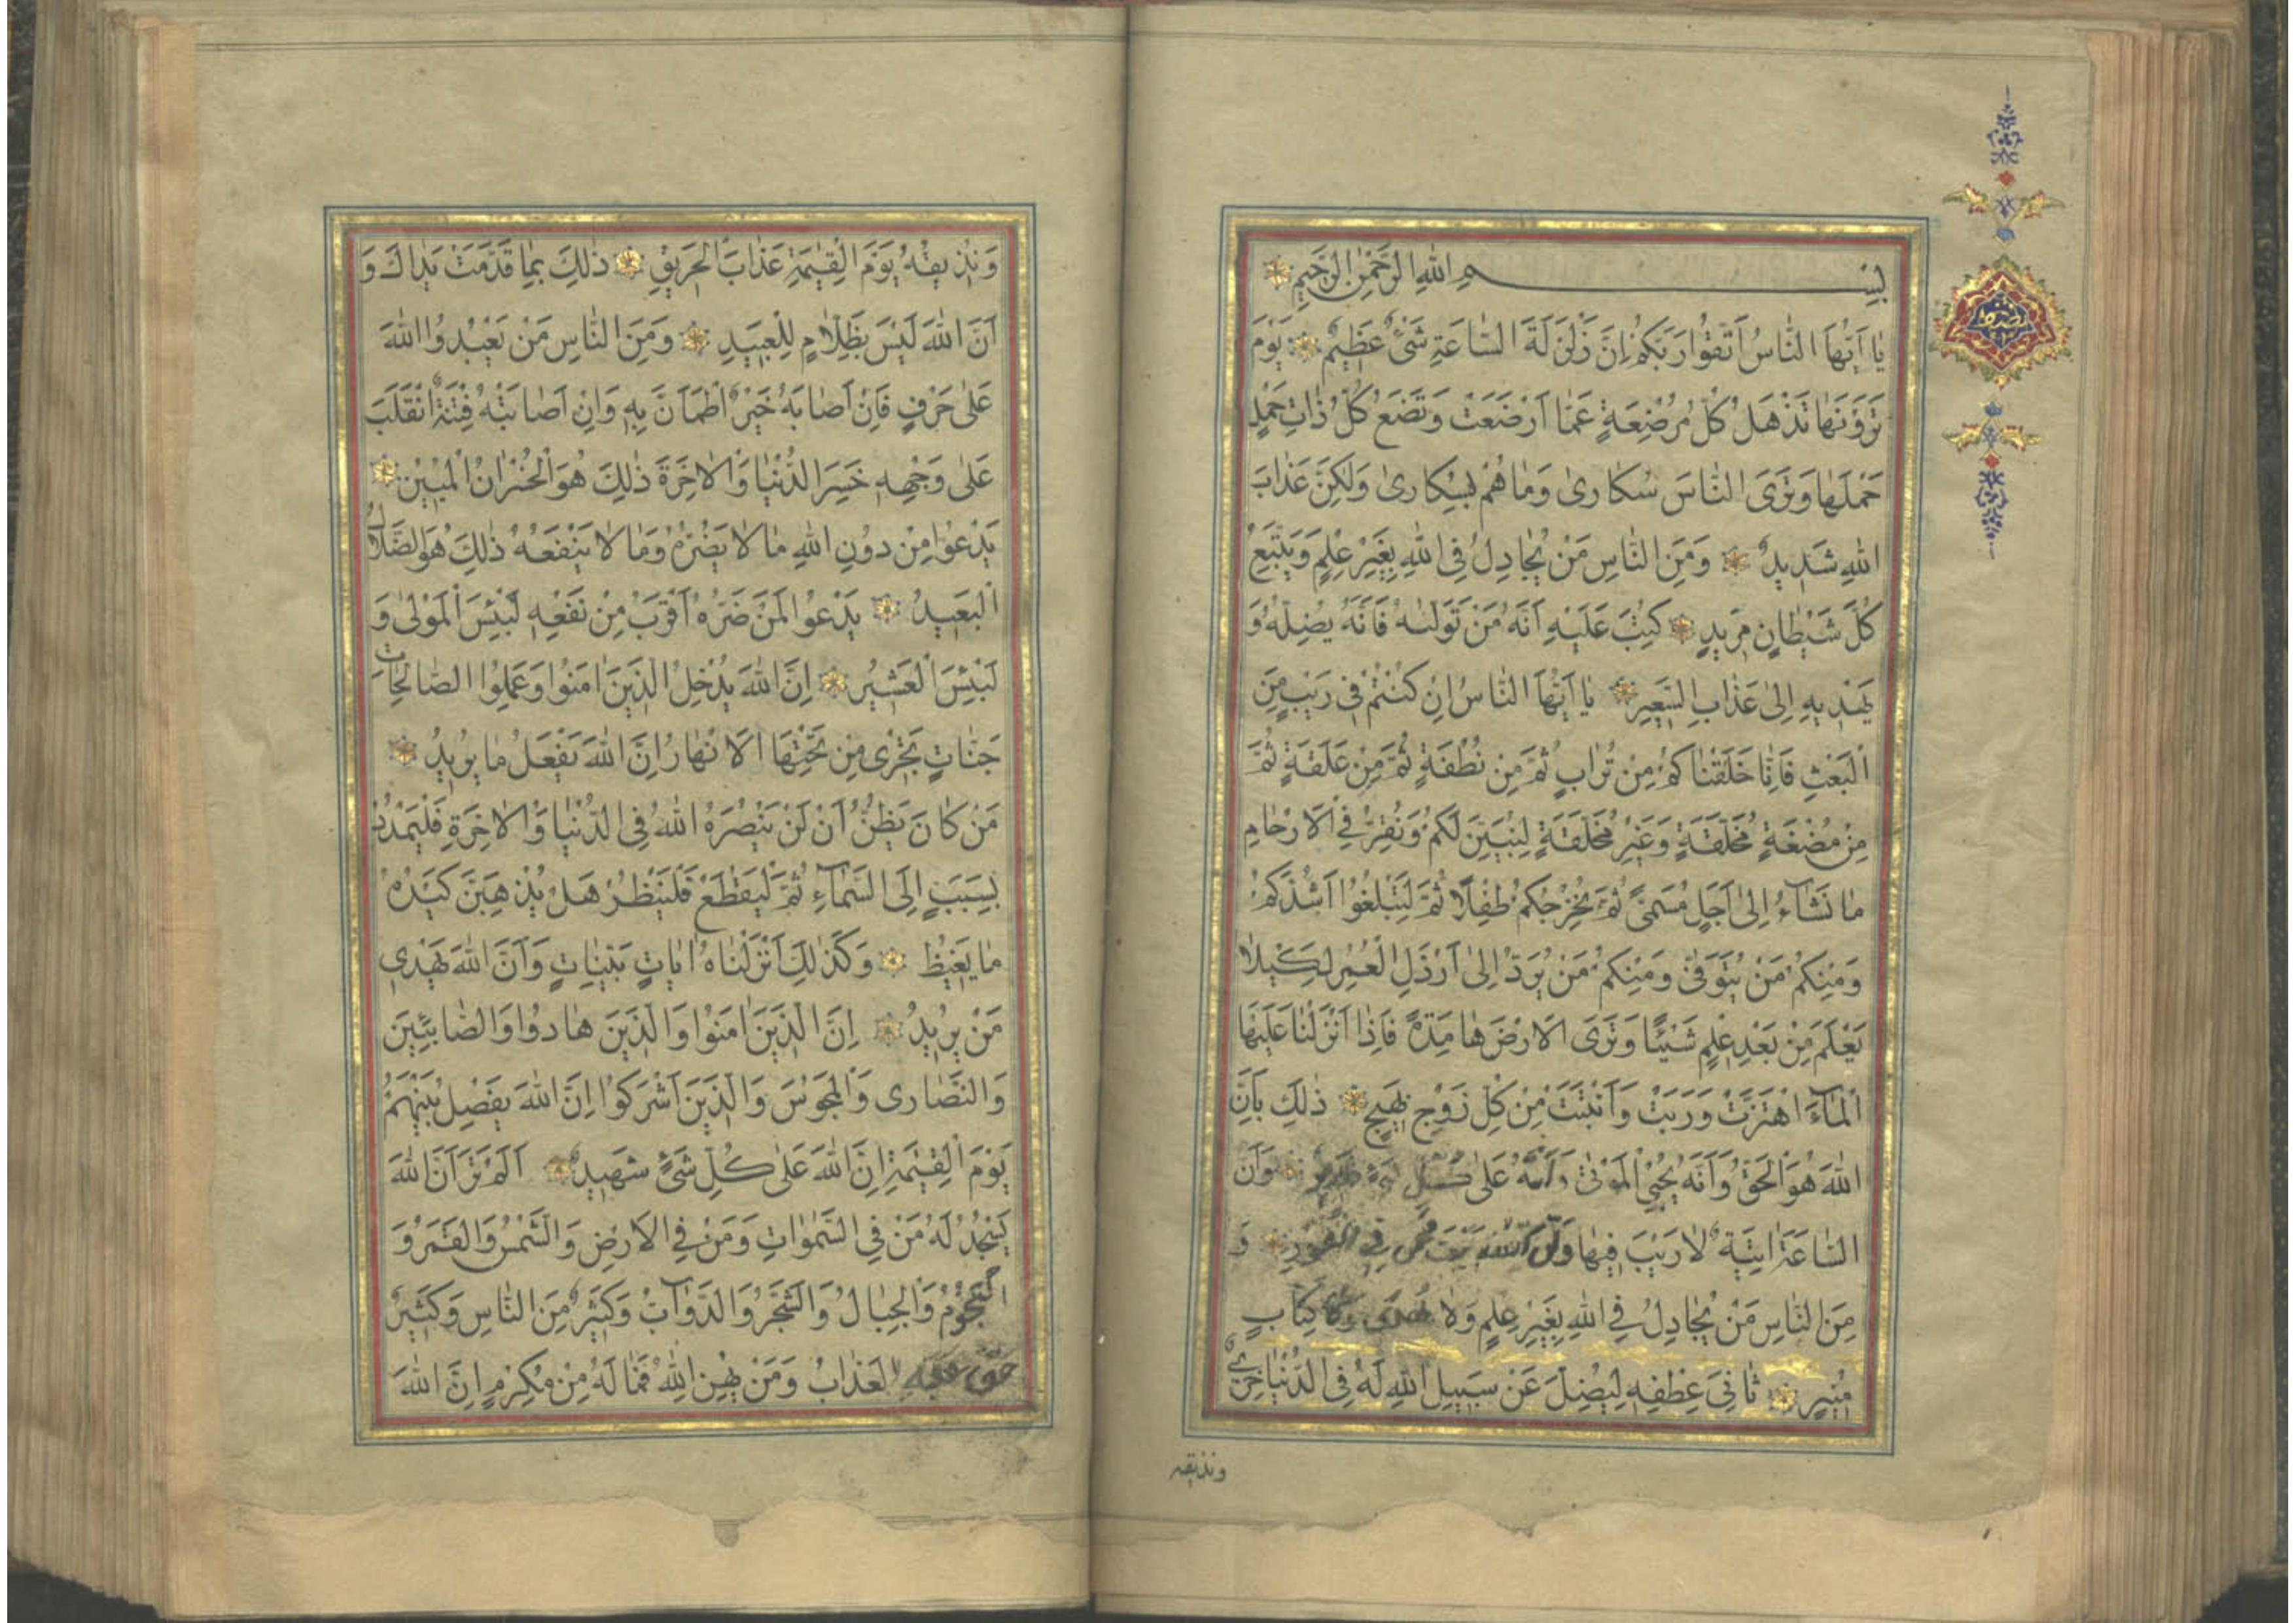 بِسْمِ اللهِ الرَّحْمٰنِ الرَّحِيمِ
يٰا اَيُّهَا النّٰاسُ اتَّقُوا رَبَّكُمْ اِنَّ زَلْزَلَةَ السّٰاعَةِ شَىْءٌ عَظِيمٌ يَوْمَ
تَرَوْنَهٰا تَذْهَلُ كُلُّ مُرْضِعَةٍ عَمّٰا اَرْضَعَتْ وَتَضَعُ كُلُّ ذٰاتِ حَمْلٍ
حَمْلَهٰا وَتَرَى النّٰاسَ سُكٰارىٰ وَمٰا هُمْ بِسُكٰارىٰ وَلٰكِنَّ عَذٰابَ
اللهِ شَدِيدٌ وَمِنَ النّٰاسِ مَنْ يُجٰادِلُ فِى اللهِ بِغَيْرِ عِلْمٍ وَيَتَّبِعُ
كُلَّ شَيْطٰانٍ مَرِيدٍ كُتِبَ عَلَيْهِ اَنَّهُ مَنْ تَوَلّٰىهُ فَاَنَّهُ يُضِلُّهُ وَ
يَهْدِيهِ اِلىٰ عَذٰابِ السَّعِيرِ يٰا اَيُّهَا النّٰاسُ اِنْ كُنْتُمْ فِى رَيْبٍ مِنَ
الْبَعْثِ فَاِنّٰا خَلَقْنٰاكُمْ مِنْ تُرٰابٍ ثُمَّ مِنْ نُطْفَةٍ ثُمَّ مِنْ عَلَقَةٍ ثُمَّ
مِنْ مُضْغَةٍ مُخَلَّقَةٍ وَغَيْرِ مُخَلَّقَةٍ لِنُبَيِّنَ لَكُمْ وَنُقِرُّ فِى الْاَرْحٰامِ
مٰا نَشٰٓاءُ اِلىٰ اَجَلٍ مُسَمًّى ثُمَّ نُخْرِجُكُمْ طِفْلًا ثُمَّ لِتَبْلُغُوا اَشُدَّكُمْ
وَمِنْكُمْ مَنْ يُتَوَفّٰى وَمِنْكُمْ مَنْ يُرَدُّ اِلىٰ اَرْذَلِ الْعُمُرِ لِكَيْلٰا
يَعْلَمَ مِنْ بَعْدِ عِلْمٍ شَيْئًا وَتَرَى الْاَرْضَ هٰامِدَةً فَاِذٰا اَنْزَلْنٰا عَلَيْهَا
الْمٰٓاءَ اهْتَزَّتْ وَرَبَتْ وَاَنْبَتَتْ مِنْ كُلِّ زَوْجٍ بَهِيجٍ ذٰلِكَ بِاَنَّ
اللهَ هُوَ الْحَقُّ وَاَنَّهُ يُحْيِى الْمَوْتىٰ وَاَنَّهُ عَلىٰ كُلِّ شَىْءٍ قَدِيرٌ وَاَنَّ
السّٰاعَةَ اٰتِيَةٌ لٰا رَيْبَ فِيهٰا وَاَنَّ اللهَ يَبْعَثُ مَنْ فِى الْقُبُورِ وَ
مِنَ النّٰاسِ مَنْ يُجٰادِلُ فِى اللهِ بِغَيْرِ عِلْمٍ وَلٰا هُدًى وَلٰا كِتٰابٍ
مُنِيرٍ ثٰانِىَ عِطْفِهِ لِيُضِلَّ عَنْ سَبِيلِ اللهِ لَهُ فِى الدُّنْيٰا خِزْىٌ
ونذيقه
وَنُذِيقُهُ يَوْمَ الْقِيٰمَةِ عَذٰابَ الْحَرِيقِ ذٰلِكَ بِمٰا قَدَّمَتْ يَدٰاكَ وَ
اَنَّ اللهَ لَيْسَ بِظَلّٰامٍ لِلْعَبِيدِ وَمِنَ النّٰاسِ مَنْ يَعْبُدُ اللهَ
عَلىٰ حَرْفٍ فَاِنْ اَصٰابَهُ خَيْرٌ اطْمَاَنَّ بِهِ وَاِنْ اَصٰابَتْهُ فِتْنَةٌ انْقَلَبَ
عَلىٰ وَجْهِهِ خَسِرَ الدُّنْيٰا وَالْاٰخِرَةَ ذٰلِكَ هُوَ الْخُسْرٰانُ الْمُبِينُ
يَدْعُوا مِنْ دُونِ اللهِ مٰا لٰا يَضُرُّهُ وَمٰا لٰا يَنْفَعُهُ ذٰلِكَ هُوَ الضَّلٰالُ
الْبَعِيدُ يَدْعُوا لَمَنْ ضَرُّهُ اَقْرَبُ مِنْ نَفْعِهِ لَبِئْسَ الْمَوْلىٰ وَ
لَبِئْسَ الْعَشِيرُ اِنَّ اللهَ يُدْخِلُ الَّذِينَ اٰمَنُوا وَعَمِلُوا الصّٰالِحٰاتِ
جَنّٰاتٍ تَجْرِى مِنْ تَحْتِهَا الْاَنْهٰارُ اِنَّ اللهَ يَفْعَلُ مٰا يُرِيدُ
مَنْ كٰانَ يَظُنُّ اَنْ لَنْ يَنْصُرَهُ اللهُ فِى الدُّنْيٰا وَالْاٰخِرَةِ فَلْيَمْدُدْ
بِسَبَبٍ اِلَى السَّمٰٓاءِ ثُمَّ لْيَقْطَعْ فَلْيَنْظُرْ هَلْ يُذْهِبَنَّ كَيْدُهُ
مٰا يَغِيظُ وَكَذٰلِكَ اَنْزَلْنٰاهُ اٰيٰاتٍ بَيِّنٰاتٍ وَاَنَّ اللهَ يَهْدِى
مَنْ يُرِيدُ اِنَّ الَّذِينَ اٰمَنُوا وَالَّذِينَ هٰادُوا وَالصّٰابِئِينَ
وَالنَّصٰارىٰ وَالْمَجُوسَ وَالَّذِينَ اَشْرَكُوا اِنَّ اللهَ يَفْصِلُ بَيْنَهُمْ
يَوْمَ الْقِيٰمَةِ اِنَّ اللهَ عَلىٰ كُلِّ شَىْءٍ شَهِيدٌ اَلَمْ تَرَ اَنَّ اللهَ
يَسْجُدُ لَهُ مَنْ فِى السَّمٰوٰاتِ وَمَنْ فِى الْاَرْضِ وَالشَّمْسُ وَالْقَمَرُ وَ
النُّجُومُ وَالْجِبٰالُ وَالشَّجَرُ وَالدَّوٰٓابُّ وَكَثِيرٌ مِنَ النّٰاسِ وَكَثِيرٌ
حَقَّ عَلَيْهِ الْعَذٰابُ وَمَنْ يُهِنِ اللهُ فَمٰا لَهُ مِنْ مُكْرِمٍ اِنَّ اللهَ